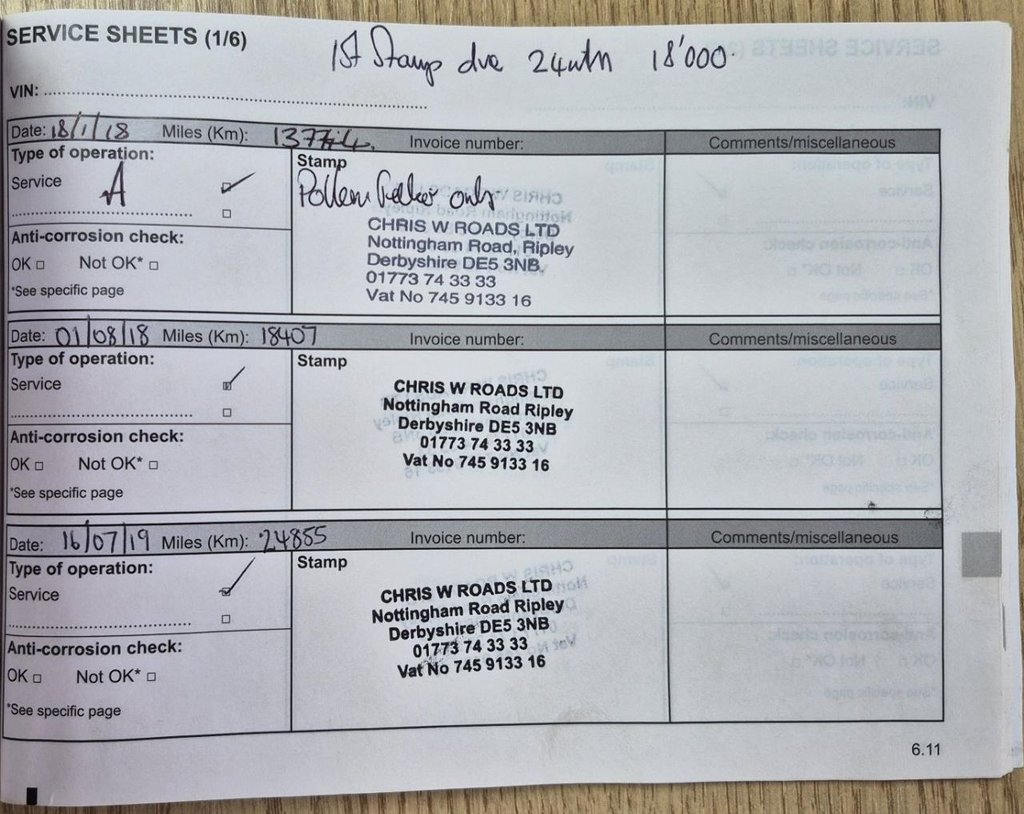 SERVICE SHEETS (1/6)
1st Stamp due 24mth 18'000
VIN:
Date: 18/1/18 Miles (Km): Invoice number: Comments/miscellaneous
Type of operation:
Service A
Stamp
Pollen Filter only
CHRIS W ROADS LTD
Nottingham Road, Ripley
Derbyshire DE5 3NB.
01773 74 33 33
Vat No 745 9133 16
Anti-corrosion check:
OK □ Not OK* □
*See specific page
Date: 01/08/18 Miles (Km): 18407 Invoice number: Comments/miscellaneous
Type of operation:
Service
Stamp
CHRIS W ROADS LTD
Nottingham Road Ripley
Derbyshire DE5 3NB
01773 74 33 33
Vat No 745 9133 16
Anti-corrosion check:
OK □ Not OK* □
*See specific page
Date: 16/07/19 Miles (Km): 24855 Invoice number: Comments/miscellaneous
Type of operation:
Service
Stamp
CHRIS W ROADS LTD
Nottingham Road Ripley
Derbyshire DE5 3NB
01773 74 33 33
Vat No 745 9133 16
Anti-corrosion check:
OK □ Not OK* □
*See specific page
6.11